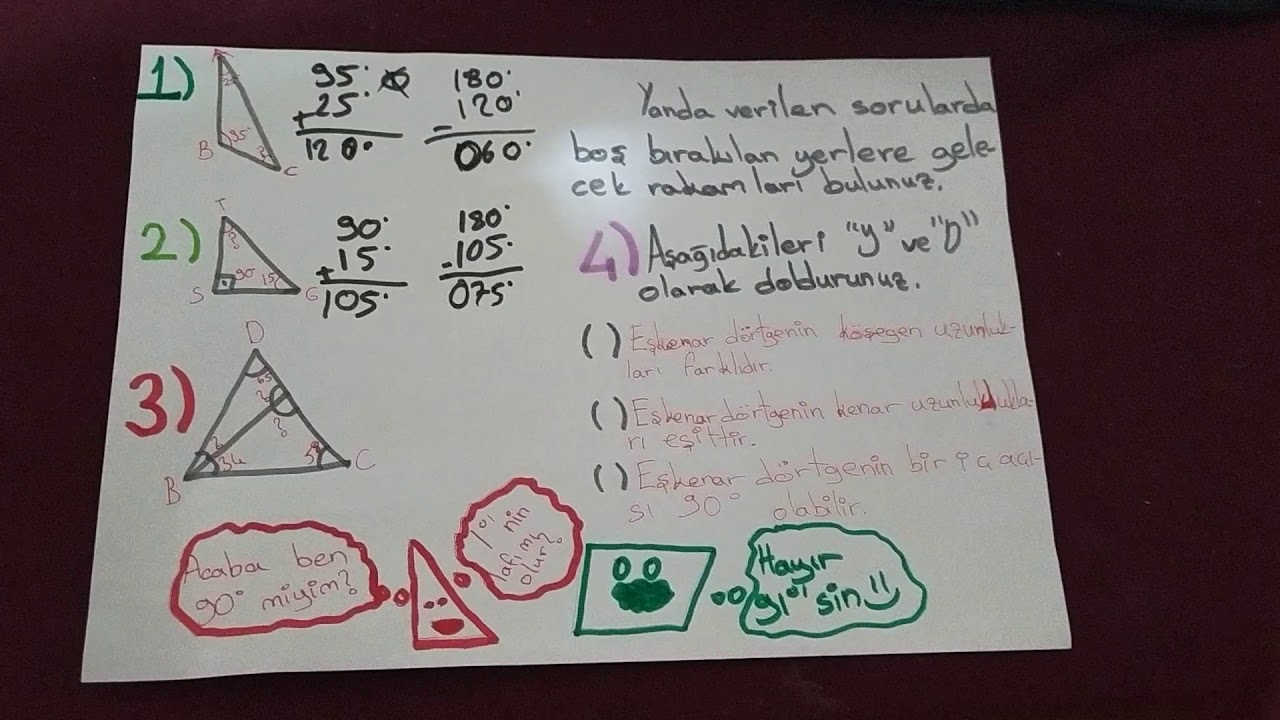 1)
25
B
95°
?
C
95°
+25°
120°
180°
-120°
060°
Yanda verilen sorularda
boş bırakılan yerlere gele-
cek rakamları bulunuz.
2)
T
?
90
15
S
G
90°
+15°
105°
180°
-105°
075°
4) Aşağıdakileri "y" ve "D"
olarak doldurunuz.
( ) Eşkenar dörtgenin köşegen uzunluk-
ları farklıdır.
( ) Eşkenar dörtgenin kenar uzunlukla-
rı eşittir.
( ) Eşkenar dörtgenin bir iç açı-
sı 90° olabilir.
3)
D
65
?
?
?
34
B
C
Acaba ben
90° miyim?
1° nin
lafı mı
olur?
Hayır
91° sin